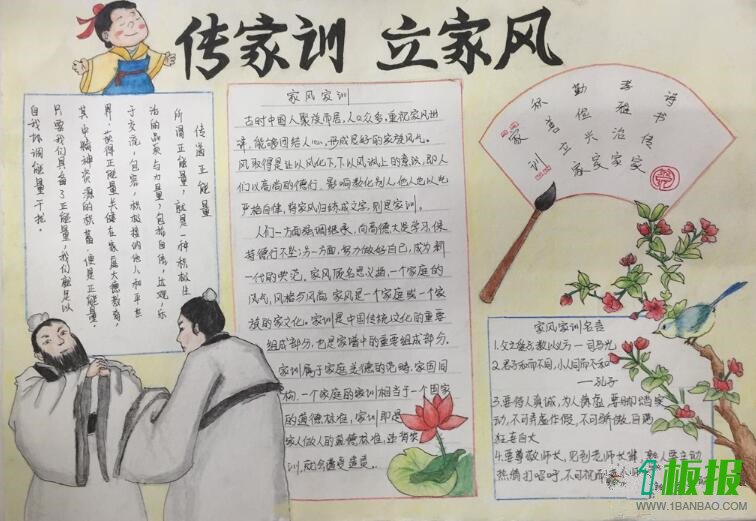 传家训 立家风
传递正能量
所谓正能量,就是一种积极生
的品质与力量,包括自信,达观,乐
于交流,包容,积极接纳他人和平共
界,获得正能量关键在家庭大德教育,
其中精神资源的积蓄,便是正能量,
只要我们具备了正能量,我们就足以
自我调能量干扰。
家风家训
古时中国人聚族带居,人口众多,重视家风训
,能够团结人心,形成良好的家族风气。
风取得是让以风化下,下以风上的意识,即人
们以高尚的德行,影响教化别人,他人也从此
严格自律,将家风归结成文字,则是家训。
人们一方面强调继承,向高德大贤学习,保
持德行不坠;另一方面,努力做好自己,成为新
一代的典范。家风顾名思义指一个家庭的
风气,风格与风尚 家风是一个家庭或一个家
族的家文化。家训是中国传统文化的重要
组成部分,也是家谱中的重要组成部分。
家训属于家庭美德的范畴,家国同
构,一个家庭的家训相当于一个国家
的道德标准,家训即是
家人做人的道德标准,
训,
诗书传家
孝雅治家
勤俭兴家
立家
家训
家风家训名言
1.父之爱子,教以义方—司马光
2.君子和而不同,小人同而不和
—孔子
3.要待人真诚,为人谦虚,要脚踏实
动,不可弄虚作假,不可骄傲,自满
狂妄自大
4.要尊敬师长,见到老师长辈,熟人要主动
热情打招呼,不可视而
板报
WWW.1BANBAO.COM